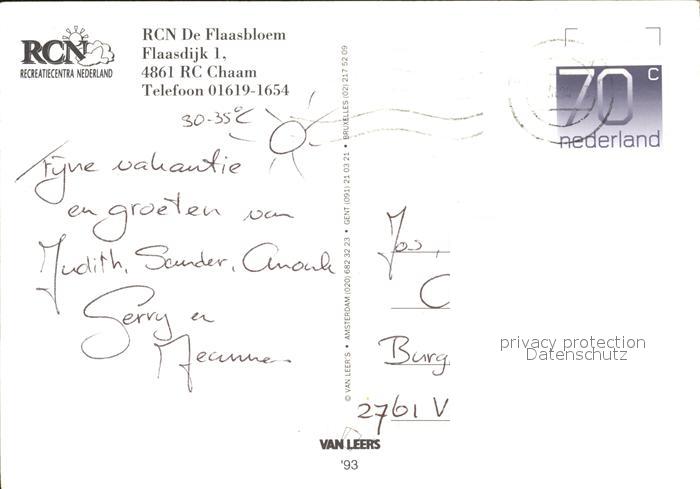 RCN
RECREATIECENTRA NEDERLAND
RCN De Flaasbloem
Flaasdijk 1,
4861 RC Chaam
Telefoon 01619-1654
30-35°C
Fijne vakantie
en groeten van
Judith, Sander, Anouk
Gerry en
Jeannne
© VAN LEER'S • AMSTERDAM (020) 682 32 23 • GENT (091) 21 03 21 • BRUXELLES (02) 217 52 09
70 c
nederland
Jos,
C
Burg.
2761 V
privacy protection
Datenschutz
VAN LEERS
'93